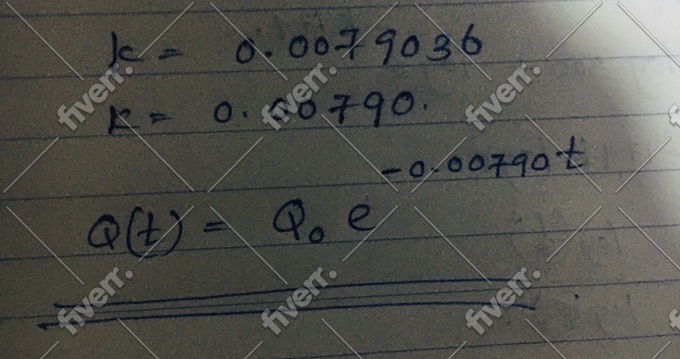 k = 0.0079036
k = 0.00790.
Q(t) = Q₀ e^{-0.00790t}
fiverr.
fiverr.
fiverr.
fiverr.
fiverr.
fiverr.